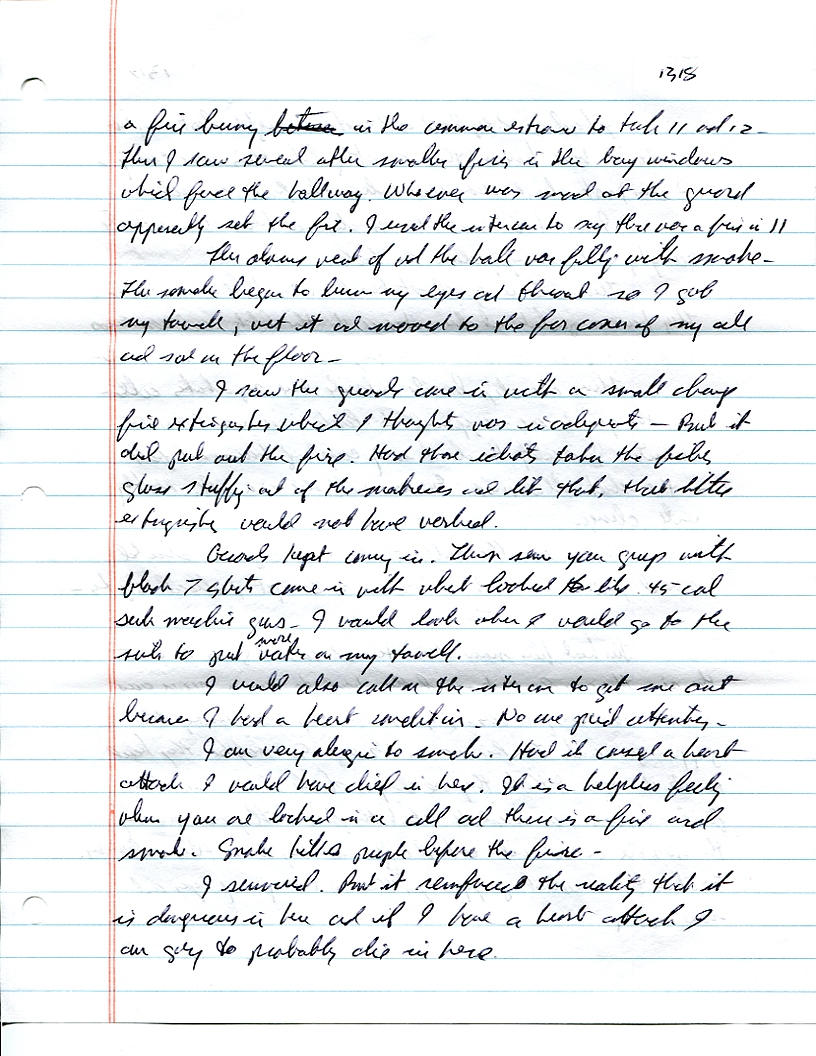 1318
a fire burning in the common entrance to tank 11 and 12-
Then I saw several other smaller fires in the bay windows
which faced the hallway. Whoever was mad at the guard
apparently set the fire. I used the intercom to say there was a fire in 11
The alarms went off and the hall was filling with smoke-
The smoke began to burn my eyes and throat so I got
my towell, wet it and moved to the far corner of my cell
and sat on the floor-
I saw the guards come in with a small
fire extinguisher which I thought was inadequate - But it
did put out the fire. Had those idiots taken the fiber
glass stuffing out of the mattresses and lit that, that little
extinguisher would not have worked.
Guards kept coming in. Then some young guys with
black T shirts came in with what looked like .45 cal
sub machine guns- I would look when I would go to the
sink to put more water on my towell.
I would also call on the intercom to get me out
because I had a heart condition- No one paid attention-
I am very alergic to smoke. Had it caused a heart
attack I would have died in here. It is a helpless feeling
when you are locked in a cell and there is a fire and
smoke. Smoke kills people before the fire-
I survived. But it reinforced the reality that it
is dangerous in here and if I have a heart attack I
am going to probably die in here.